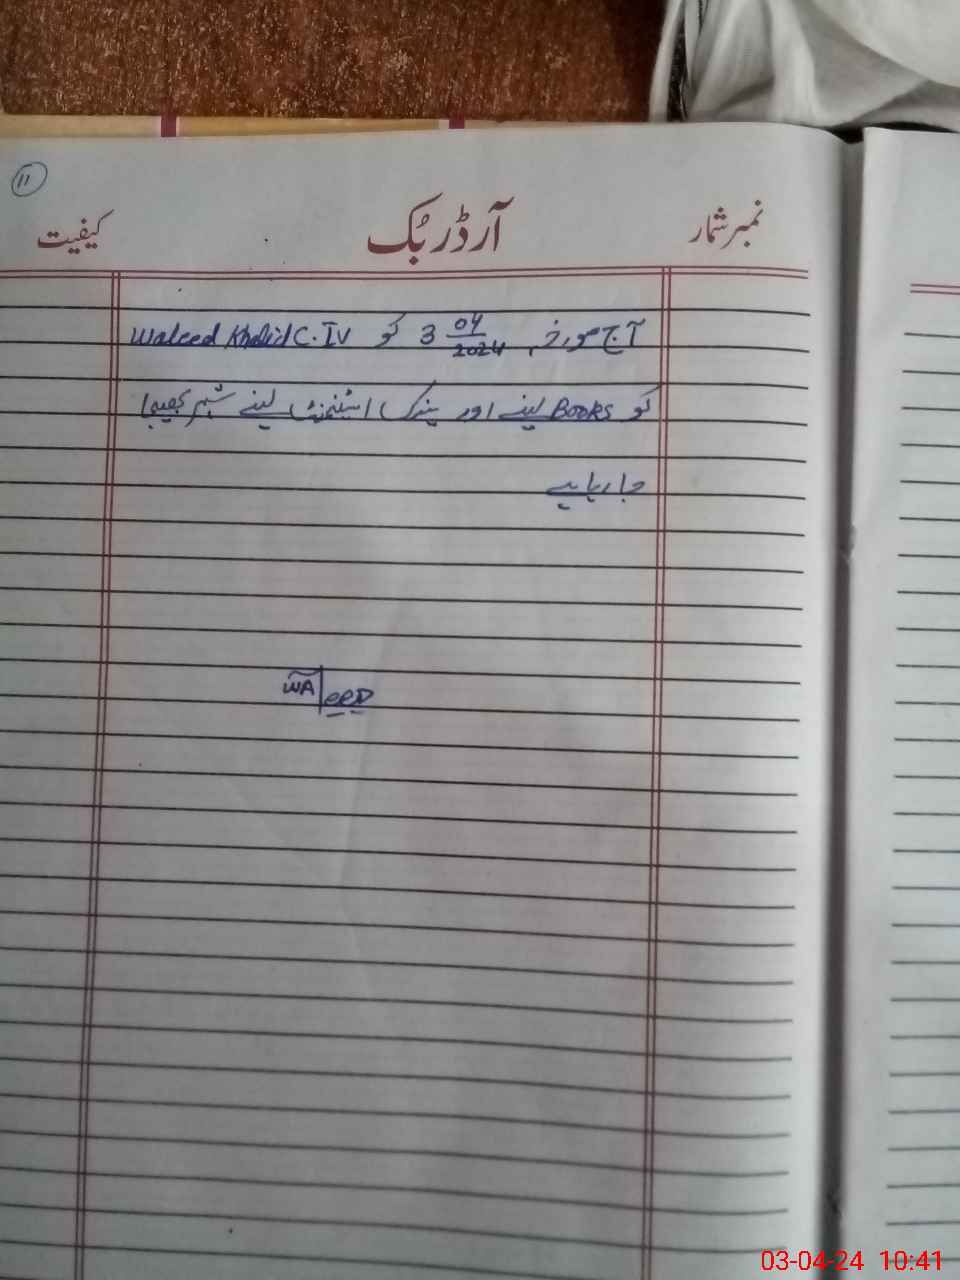 11
نمبر شمار آرڈر بُک کیفیت
آج مورخہ 3 04/2024 کو Waleed Khalid C.IV
کو Books لینے اور بنک اسٹیمنٹ لینے شہر بھیجا
جا رہا ہے
WAleeD
03-04-24 10:41